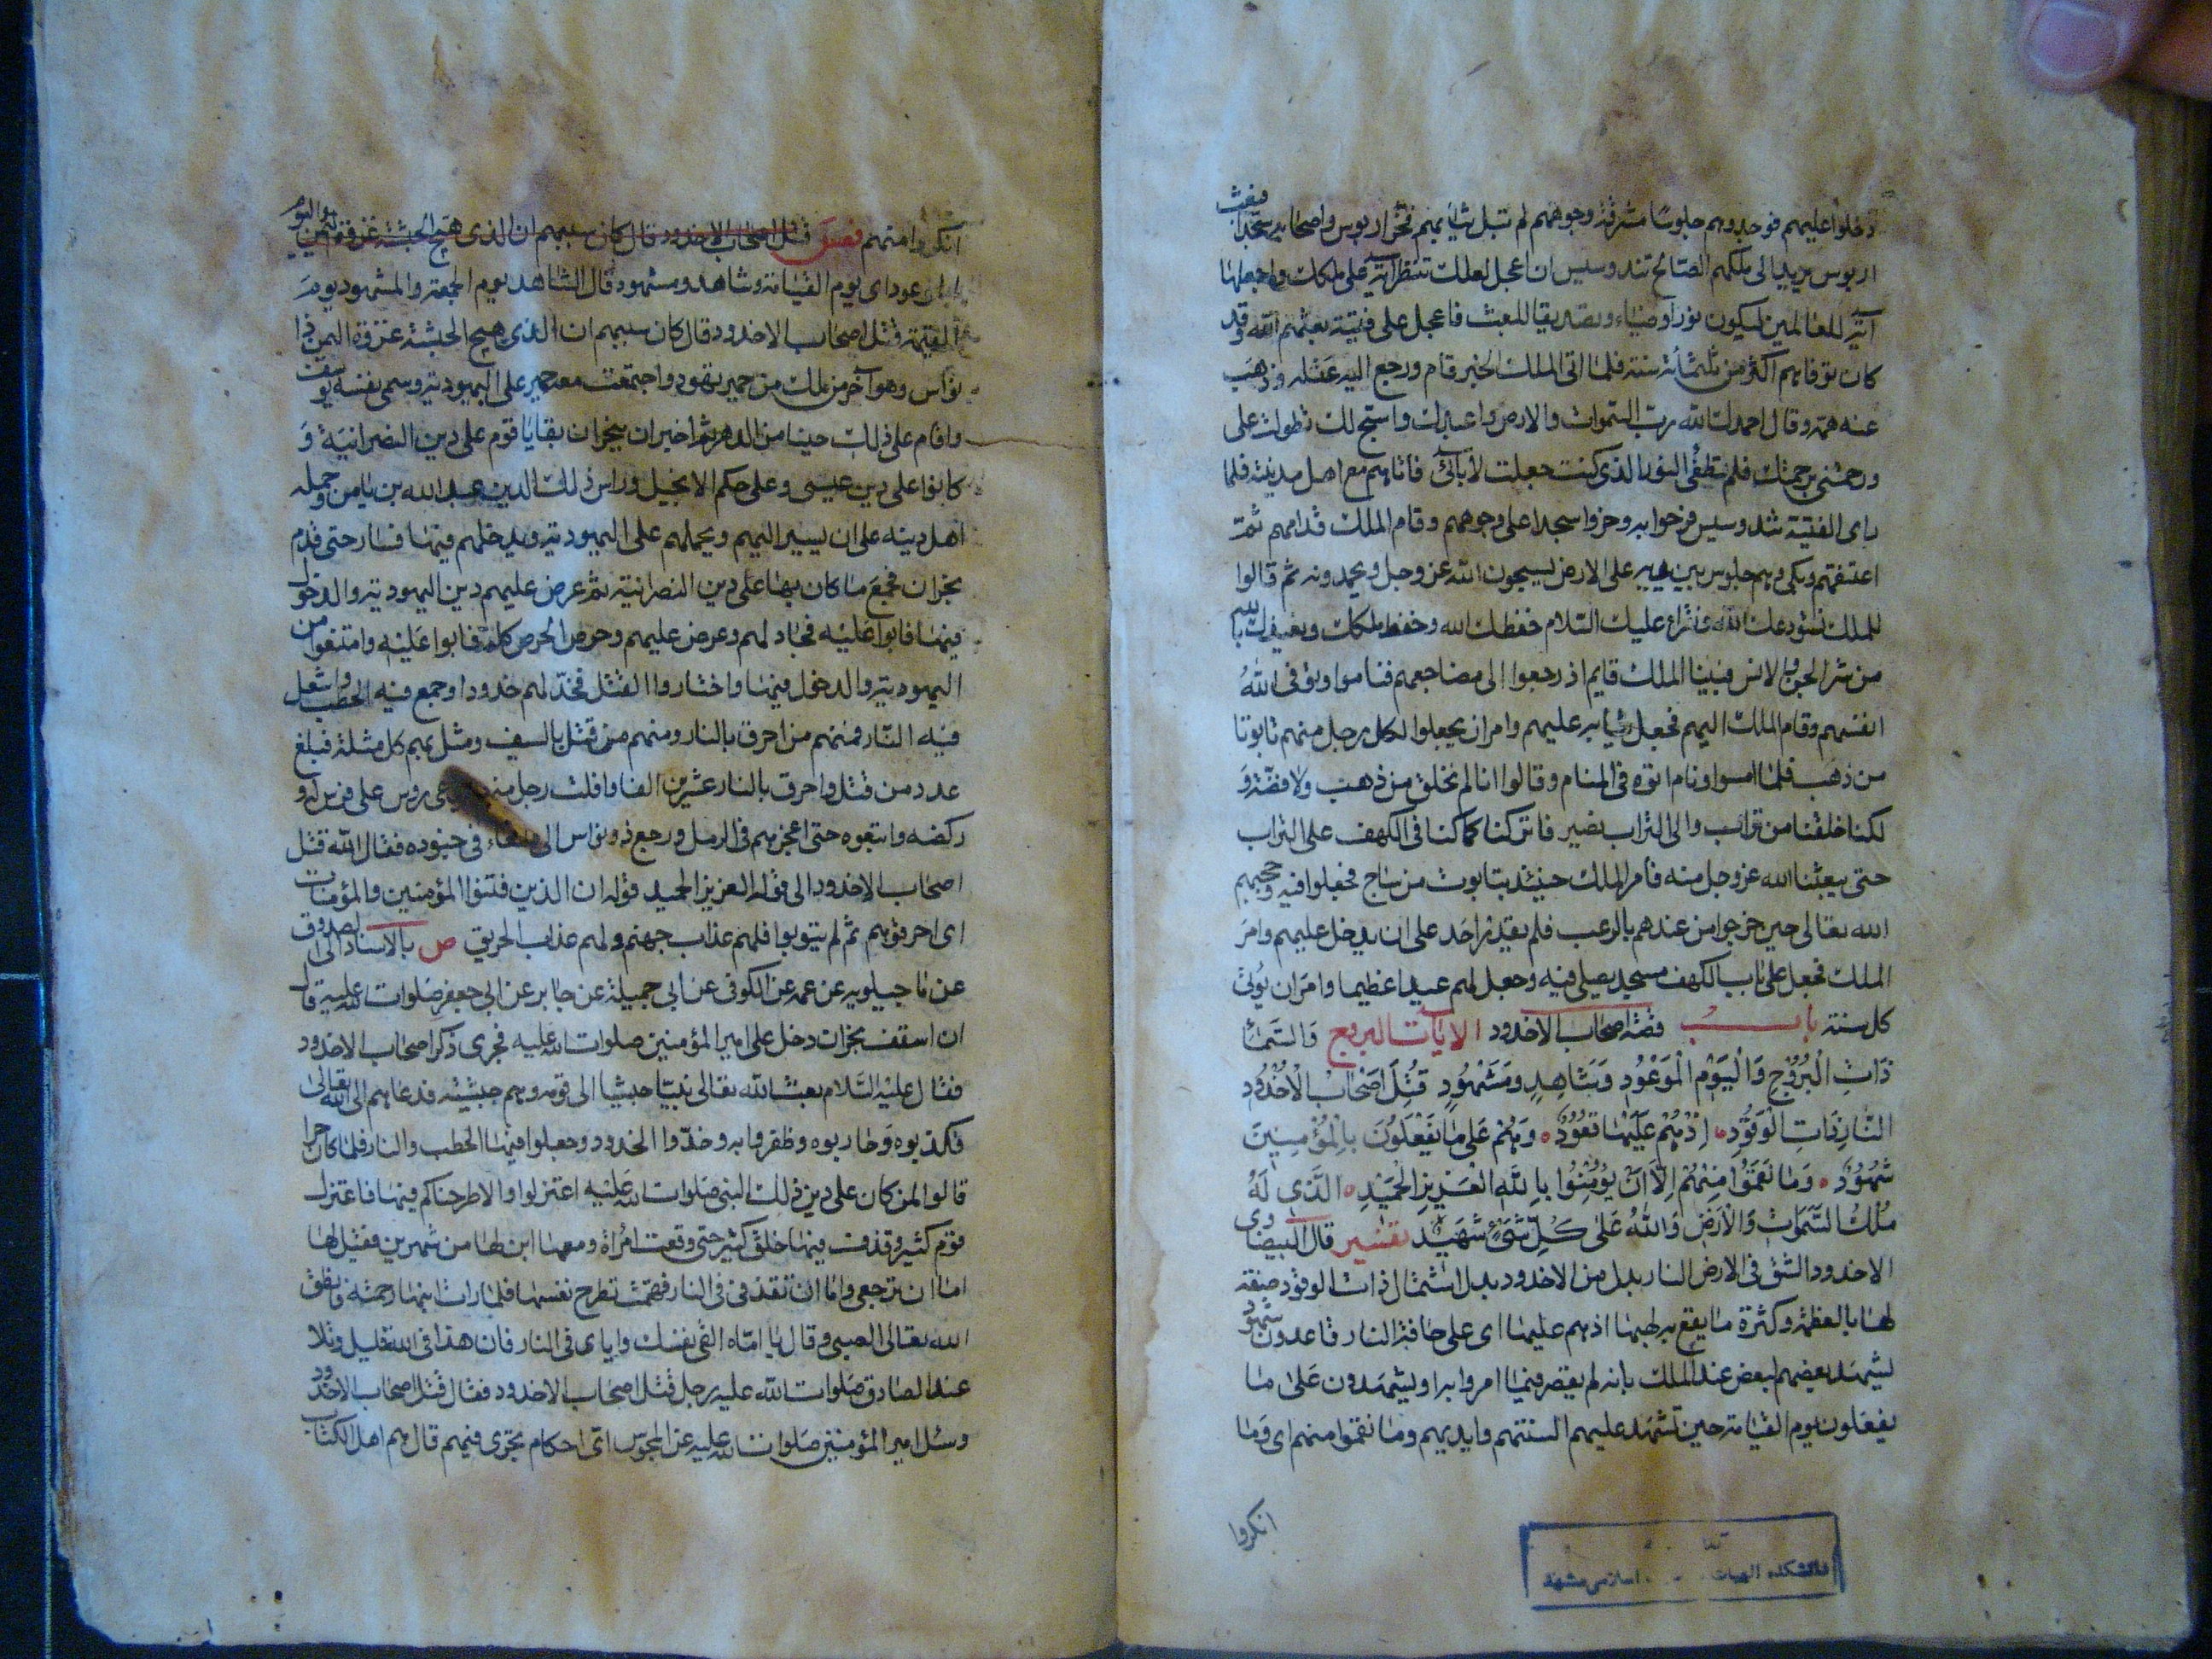 دخلوا عليهم فوجدوهم جلوسا مشرقة وجوههم لم تبل ثيابهم فخر اريوس واصحابه سجدا فبعث
اريوس بريدا الى ملكهم الصالح تندوسيس ان اعجل لعلك تنظر اية على ملكك واجعلها
آية للعالمين ليكون نورا وضياء وتصديقا للبعث فاعجل على فتية بعثهم الله وقد
كان توفاهم اكثر من ثلثمائة سنة فلما اتى الملك الخبر قام ورجع اليه عقله وذهب
عنه همه وقال احمدك الله رب السموات والارض واعبدك واسبح لك تطولت على
ورحمتني برحمتك فلم تطفئ النور الذي كنت جعلت لآبائي فاتاهم مع اهل مدينته فلما
راى الفتية تندوسيس فرحوا به وخروا سجدا على وجوههم وقام الملك قدامهم ثم
اعتنقهم وبكى وهم جلوس بين يديه على الارض يسبحون الله عز وجل ويحمدونه ثم قالوا
للملك نستودعك الله ونقراء عليك السلام حفظك الله وحفظ ملكك ونعيذك بالله
من شر الجن والانس فبينا الملك قايم اذ رجعوا الى مضاجعهم فناموا وتوفى الله
انفسهم وقام الملك اليهم فجعل ثيابه عليهم وامر ان يجعلوا لكل رجل منهم تابوتا
من ذهب فلما امسوا ونام اتوه في المنام وقالوا انا لم نخلق من ذهب ولا فضة و
لكنا خلقنا من تراب والى التراب نصير فاتركنا كما كنا في الكهف على التراب
حتى يبعثنا الله عز وجل منه فامر الملك حينئذ بتابوت من ساج فجعلوا فيه وحجبهم
الله تعالى حين خرجوا من عندهم بالرعب فلم يقدر احد على ان يدخل عليهم وامر
الملك فجعل على باب الكهف مسجد يصلى فيه وجعل لهم عيدا عظيما وامر ان يؤتى
كل سنة باب قصة اصحاب الاخدود الايات البروج والسماء
ذَاتِ الْبُرُوجِ وَالْيَوْمِ الْمَوْعُودِ وَشَاهِدٍ وَمَشْهُودٍ قُتِلَ اَصْحَابُ الْاُخْدُودِ
النَّارِ ذَاتِ الْوَقُودِ اِذْ هُمْ عَلَيْهَا قُعُودٌ وَهُمْ عَلَى مَا يَفْعَلُونَ بِالْمُؤْمِنِينَ
شُهُودٌ وَمَا نَقَمُوا مِنْهُمْ اِلَّا اَنْ يُؤْمِنُوا بِاللَّهِ الْعَزِيزِ الْحَمِيدِ الَّذِى لَهُ
مُلْكُ السَّمَوَاتِ وَالْاَرْضِ وَاللهُ عَلَى كُلِّ شَىْءٍ شَهِيدٌ تفسير قال البيضاوي
الاخدود الشق في الارض النار بدل من الاخدود بدل اشتمال ذات الوقود صفة
لها بالعظمة وكثرة ما يقع به لهبها اذ هم عليها اى على حافة النار قاعدون شهود
يشهد بعضهم لبعض عند الملك بانه لم يقصر فيما امروا به او يشهدون على ما
يفعلون يوم القيامة حين تشهد عليهم السنتهم وايديهم وما نقموا منهم اى وما
انكروا
دانشكده الهيات اسلامى مشهد
انكروا منهم فس قتل اصحاب الاخدود قال كان سببهم ان الذى هيج الحبشة غزوة اليمن واليوم
الموعود اى يوم القيامة وشاهد ومشهود قال الشاهد يوم الجمعة والمشهود يوم
القيمة قتل اصحاب الاخدود قال كان سببهم ان الذى هيج الحبشة غزوة اليمن ذا
نواس وهو آخر من ملك من حمير تهود واجتمعت معه حمير على اليهودية وسمى نفسه يوسف
واقام على ذلك حينا من الدهر ثم اخبر ان بنجران بقايا قوم على دين النصرانية و
كانوا على دين عيسى وعلى حكم الانجيل وراس ذلك الدين عبد الله بن يامن وحمله
اهل دينه على ان يسير اليهم ويحملهم على اليهودية ويدخلهم فيها فسار حتى قدم
نجران فجمع ما كان بها على دين النصرانية ثم عرض عليهم دين اليهودية والدخول
فيها فابوا عليه فجادلهم وعرض عليهم وحرص الحرص كله فابوا عليه وامتنعوا من
اليهودية والدخول فيها واختاروا القتل فخد لهم خدودا وجمع فيه الحطب واشعل
فيه النار فمنهم من احرق بالنار ومنهم من قتل بالسيف ومثل بهم كل مثلة فبلغ
عدد من قتل واحرق بالنار عشرين الفا وافلت رجل منهم يدعى دوس على فرس له و
ركضه واتبعوه حتى اعجزهم في الرمل ورجع ذو نواس الى صنعاء في جنوده فقال الله قتل
اصحاب الاخدود الى قوله العزيز الحميد قوله ان الذين فتنوا المؤمنين والمؤمنات
اى احرقوهم ثم لم يتوبوا فلهم عذاب جهنم ولهم عذاب الحريق ص بالاسناد الى الصدوق
عن ماجيلويه عن عمه عن الكوفى عن ابى جميلة عن جابر عن ابى جعفر صلوات الله عليه قال
ان اسقف نجران دخل على امير المؤمنين صلوات الله عليه فجرى ذكر اصحاب الاخدود
فقال عليه السلام بعث الله تعالى نبيا حبشيا الى قومه وهم حبشية فدعاهم الى الله تعالى
فكذبوه وحاربوه وظفروا به وخدوا الخدود وجعلوا فيها الحطب والنار فلما كان حرا
قالوا لمن كان على دين ذلك النبى صلوات الله عليه اعتزلوا والا طرحناكم فيها فاعتزل
قوم كثير وقذف فيها خلق كثير حتى وقعت امراة ومعها ابن لها من شهرين فقيل لها
اما ان ترجعى واما ان تقذفى في النار فهمت تطرح نفسها فلما رات ابنها رحمته فانطق
الله تعالى الصبى وقال يا اماه القى نفسك واياى في النار فان هذا في الله قليل وتلا
عند الصادق صلوات الله عليه رجل قتل اصحاب الاخدود فقال قتل اصحاب الاخدود
وسئل امير المؤمنين صلوات الله عليه عن المجوس اى احكام تجرى فيهم قال هم اهل الكتاب